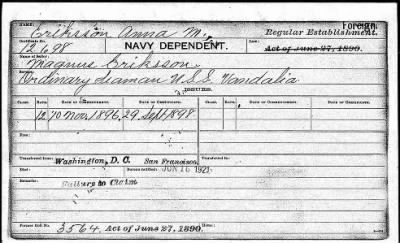 Foreign.
Eriksson Anna M.
Regular Establishment.
Certificate No.
12698
NAVY DEPENDENT.
Law:
Act of June 27, 1890.
Magnus Eriksson
Ordinary Seaman U.S.S. Vandalia
ISSUES.
Class. Date of Commencement. Date of Certificate. Date of Commencement. Date of Certificate.
12 10 Nov, 1896, 29 Sept 1898
Rate:
Transferred from: Washington, D. C. San Francisco, Transferred to:
Died: Bureau notified: JUN 16 1921
Remarks:
Failure to Claim
Former Roll No. 3564, Act of June 27, 1890.